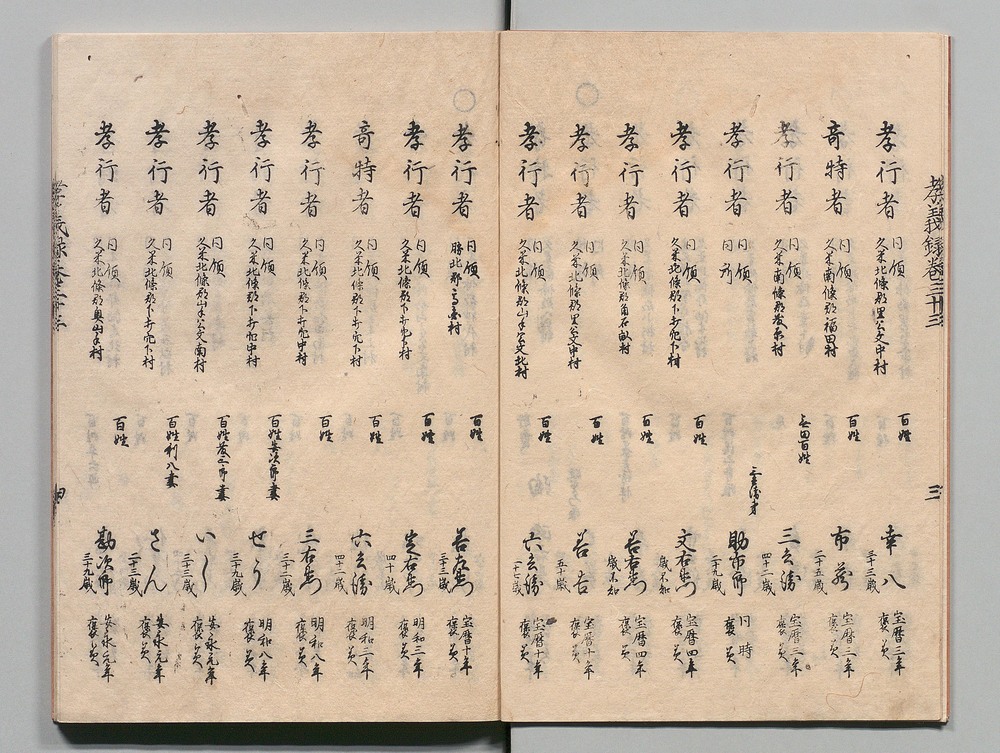 孝義録巻三十三
三
孝行者 同領 久米北條郡里公文中村 百姓 幸八 三十三歳 宝暦三年 褒美
奇特者 同領 久米南條郡福田村 百姓 市蔵 二十五歳 宝暦三年 褒美
孝行者 同領 久米南條郡 無田百姓 三兵衛 四十二歳 宝暦三年 褒美
孝行者 同領 同所 三兵衛弟 助市郎 二十九歳 同時 褒美
孝行者 同領 久米北條郡下打穴下村 百姓 文右衛門 歳不知 宝暦四年 褒美
孝行者 同領 久米北條郡角石畝村 百姓 善右衛門 歳不知 宝暦四年 褒美
孝行者 同領 久米北條郡里公文中村 百姓 善吉 五十歳 宝暦十年 褒美
孝行者 同領 久米北條郡山手公文北村 百姓 六兵衛 宝暦十年 褒美
孝行者 同領 勝北郡 百姓 三十三歳 宝暦十年 褒美
孝行者 同領 久米北條郡下打穴下村 百姓 定右衛門 四十歳 明和三年 褒美
奇特者 同領 久米北條郡下打穴下村 百姓 六兵衛 四十二歳 明和三年 褒美
孝行者 同領 久米北條郡下打穴中村 百姓 三右衛門 三十二歳 明和八年 褒美
孝行者 同領 久米北條郡下打穴中村 百姓安次郎妻 せう 三十九歳 明和八年 褒美
孝行者 同領 久米北條郡山手公文南村 百姓茂三郎妻 いし 三十三歳 安永元年 褒美
孝行者 同領 久米北條郡下打穴下村 百姓利八妻 さん 二十三歳 安永元年 褒美
孝行者 同領 久米北條郡奥山手村 百姓 勘次郎 三十九歳 安永元年 褒美
孝義録巻三十三
四